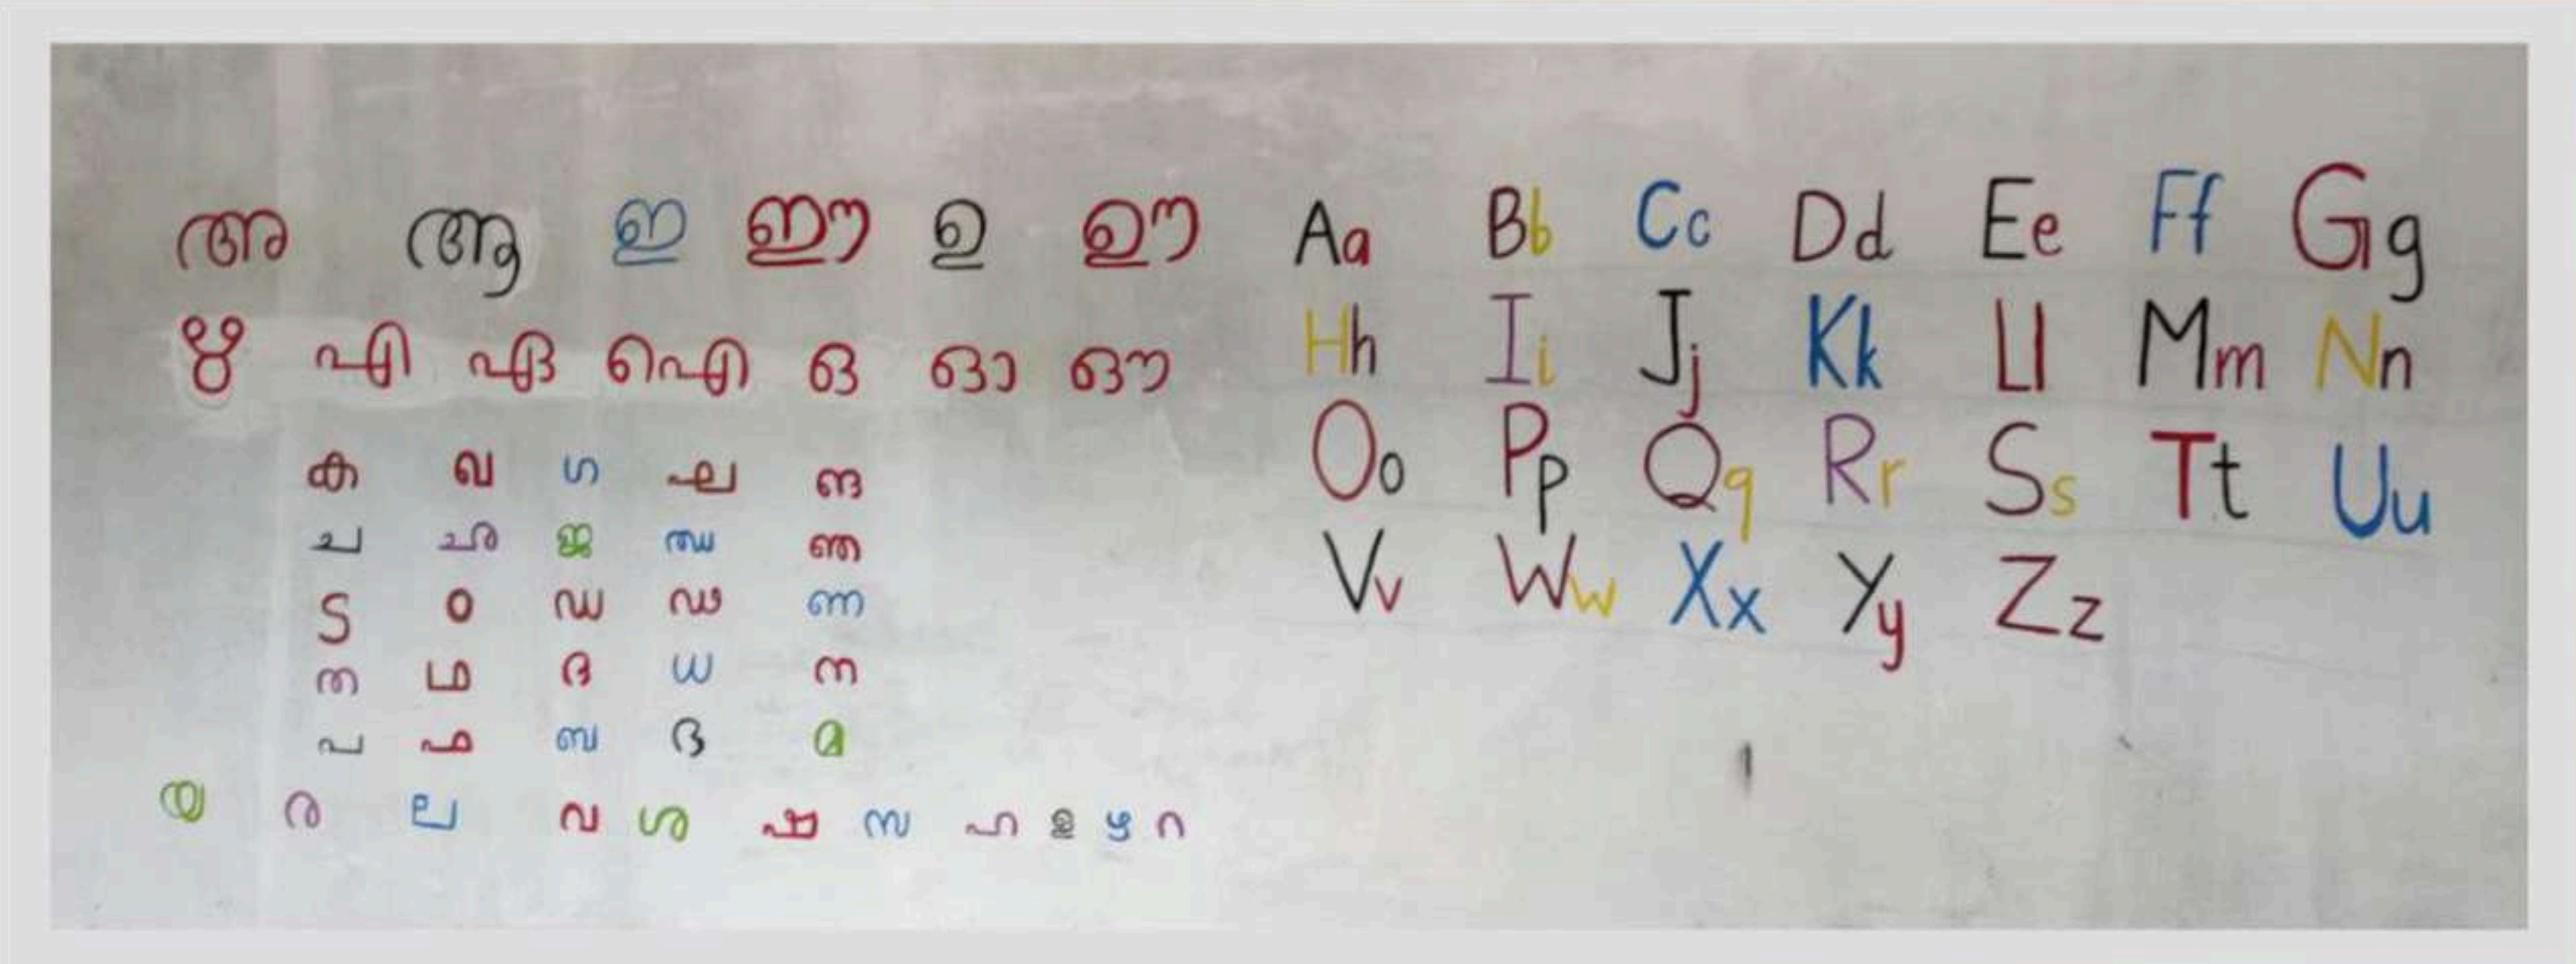 അ ആ ഇ ഈ ഉ ഊ
ഋ എ ഏ ഐ ഒ ഓ ഔ
ക ഖ ഗ ഘ ങ
ച ഛ ജ ഝ ഞ
ട ഠ ഡ ഢ ണ
ത ഥ ദ ധ ന
പ ഫ ബ ഭ മ
യ ര ല വ ശ ഷ സ ഹ ള ഴ റ
Aa Bb Cc Dd Ee Ff Gg
Hh Ii Jj Kk Ll Mm Nn
Oo Pp Qq Rr Ss Tt Uu
Vv Ww Xx Yy Zz